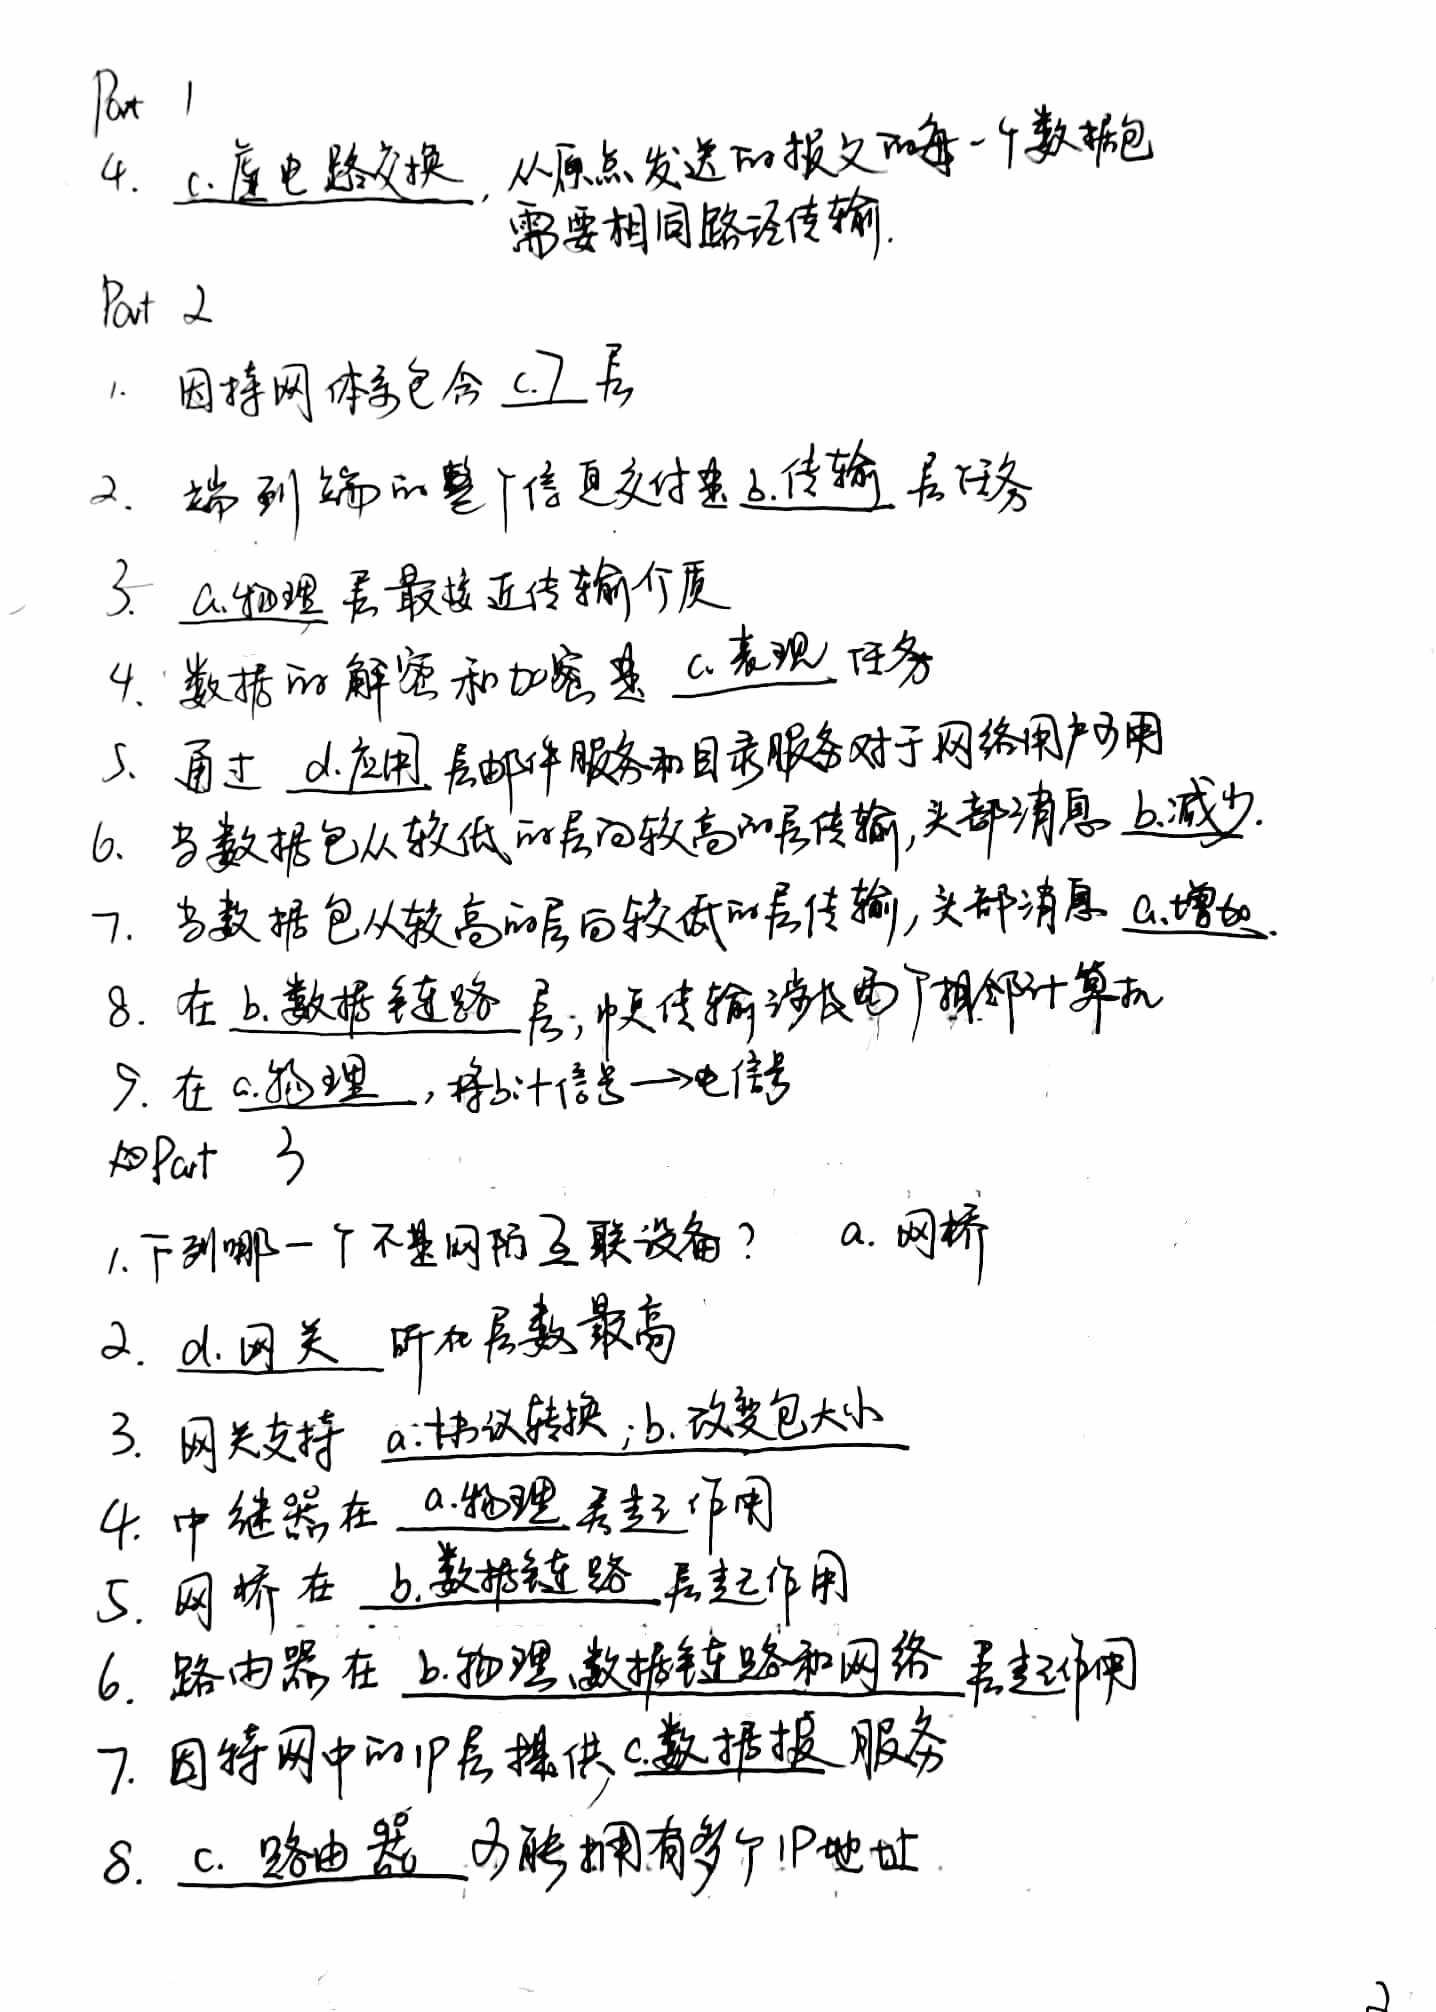 Part 1
4. c.虚电路交换, 从原点发送的报文的每一个数据包
需要相同路径传输.
Part 2
1. 因特网体系包含 c.7 层
2. 端到端的整个信息交付是 b.传输 层任务
3. a.物理 层最接近传输介质
4. 数据的解密和加密是 c.表现 任务
5. 通过 d.应用 层邮件服务和目录服务对于网络用户可用
6. 当数据包从较低的层向较高的层传输,头部消息 b.减少.
7. 当数据包从较高的层向较低的层传输,头部消息 a.增加.
8. 在 b.数据链路 层,帧传输涉及两个相邻计算机
9. 在 a.物理 , 将bit信号→电信号
Part 3
1.下列哪一个不是网际互联设备? a. 网桥
2. d.网关 所在层数最高
3. 网关支持 a.协议转换;b.改变包大小
4. 中继器在 a.物理 层起作用
5. 网桥在 b.数据链路 层起作用
6. 路由器在 b.物理、数据链路和网络 层起作用
7. 因特网中的IP层提供 c.数据报 服务
8. c. 路由器 可能拥有多个IP地址
2